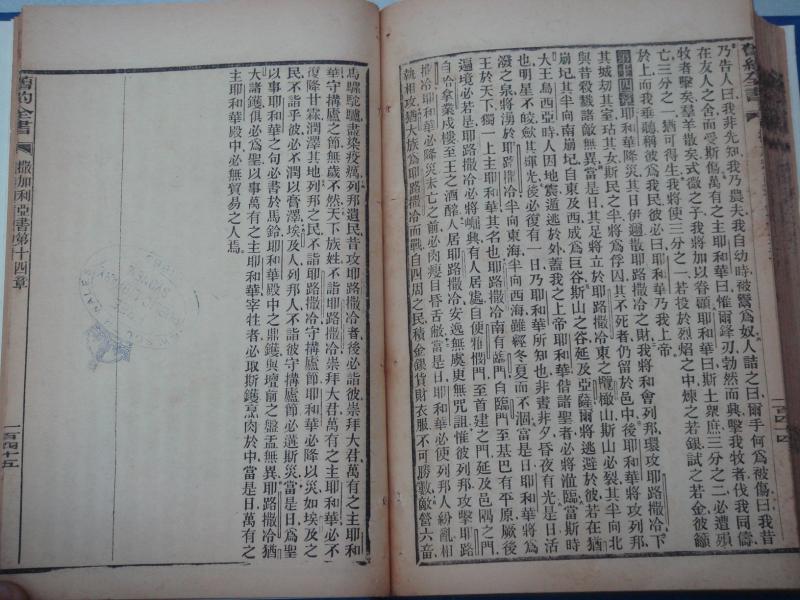 舊約全書
一百四十四
乃告人曰我非先知我乃農夫我自幼時被鬻爲奴人詰之曰爾手何爲被傷曰我昔
在友人之舍而受斯傷萬有之主耶和華曰惟爾鋒刃勃然而興擊我牧者伐我同儔
牧者擊矣羣羊散矣式微之子我將加以眷顧耶和華曰斯土衆庶三分之二必遭殞
亡三分之一猶可得生我將使三分之一若投於烈焰之中煉之若銀試之若金彼籲
於上而我垂聽稱彼爲我民彼必曰耶和華乃我上帝
第十四章耶和華降災其日伊邇散耶路撒冷之財我將和會列邦環攻耶路撒冷下
其城劫其室玷其女民之半將爲俘囚其不死者仍留於邑中後耶和華將攻列邦
與昔殺戮諸敵無異當是日其足將立於耶路撒冷東之橄欖山斯山必裂其半向北
崩圮其半向南崩圮自東及西成爲巨谷斯山之谷延及亞薩爾將逃避於彼若在猶
大王烏西亞時人因地震遁逃於外蓋我之上帝耶和華偕諸聖者必將涖臨當斯時
也明星不皎斂其輝光後必復有一日乃耶和華所知也非晝非夕昏夜有光是日活
潑之泉將湧於耶路撒冷半向東海半向西海雖經冬夏而不涸當是日耶和華將爲
王於天下獨一上主耶和華其名也耶路撒冷南有臨門自臨門至基巴有平原厥後
邇境必若是耶路撒冷必將興有人居處自便雅憫門至首建之門延及邑隅之門
自哈拿業戍樓至王之酒醡人居耶路撒冷安逸無虞更無咒詛惟彼列邦攻擊耶路
撒冷耶和華必降災未亡之前必肉瘦目昏舌敝當是日耶和華必使列邦人紛亂相
執相攻猶大族爲耶路撒冷而戰自四周之民積金銀貨財衣服不可勝數敵營六畜
馬騾駝驢盡染疫癘列邦遺民昔攻耶路撒冷者後必詣彼崇拜大君萬有之主耶和
華守搆廬之節無歲不然天下族姓不詣耶路撒冷崇拜大君萬有之主耶和華必不
復降甘霖潤澤其地列邦之民不詣耶路撒冷守搆廬節耶和華必降以災如埃及之
民不詣乎彼必不潤以膏澤埃及人列邦人不詣彼守搆廬節必遘斯災當是日爲聖
以事耶和華之句必書於馬鈴耶和華殿中之鼎鑊與壇前之盤盂無異耶路撒冷猶
大諸鑊俱必爲聖以事萬有之主耶和華宰牲者必取斯鑊烹肉於中當是日萬有之
主耶和華殿中必無貿易之人焉
舊約全書
撒加利亞書第十四章
一百四十五